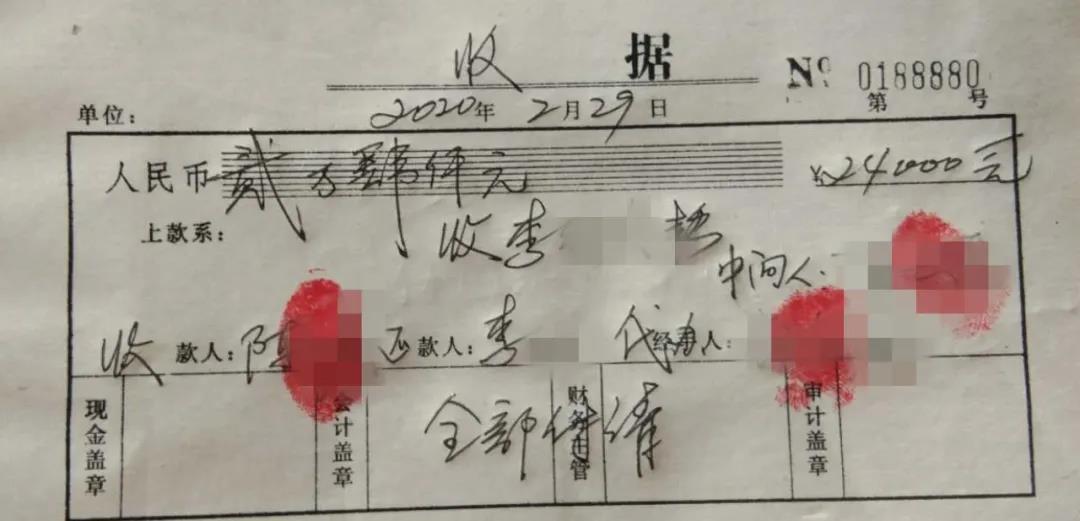 收 据
№ 0188880
第 号
单位: 2020年 2月29日
人民币 贰万肆仟元 ¥24000元
上款系: 收李
中间人:
收款人:陈 还款人:李 代经办人:
现金盖章 会计盖章 财务主管 审计盖章
全部付清